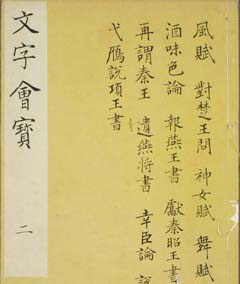 風賦 對楚王問 神女賦 舞賦
酒味色論 報燕王書 獻秦昭王書
再謂秦王 遺燕將書 幸臣論
弋鴈說項王書
文字會寶 二